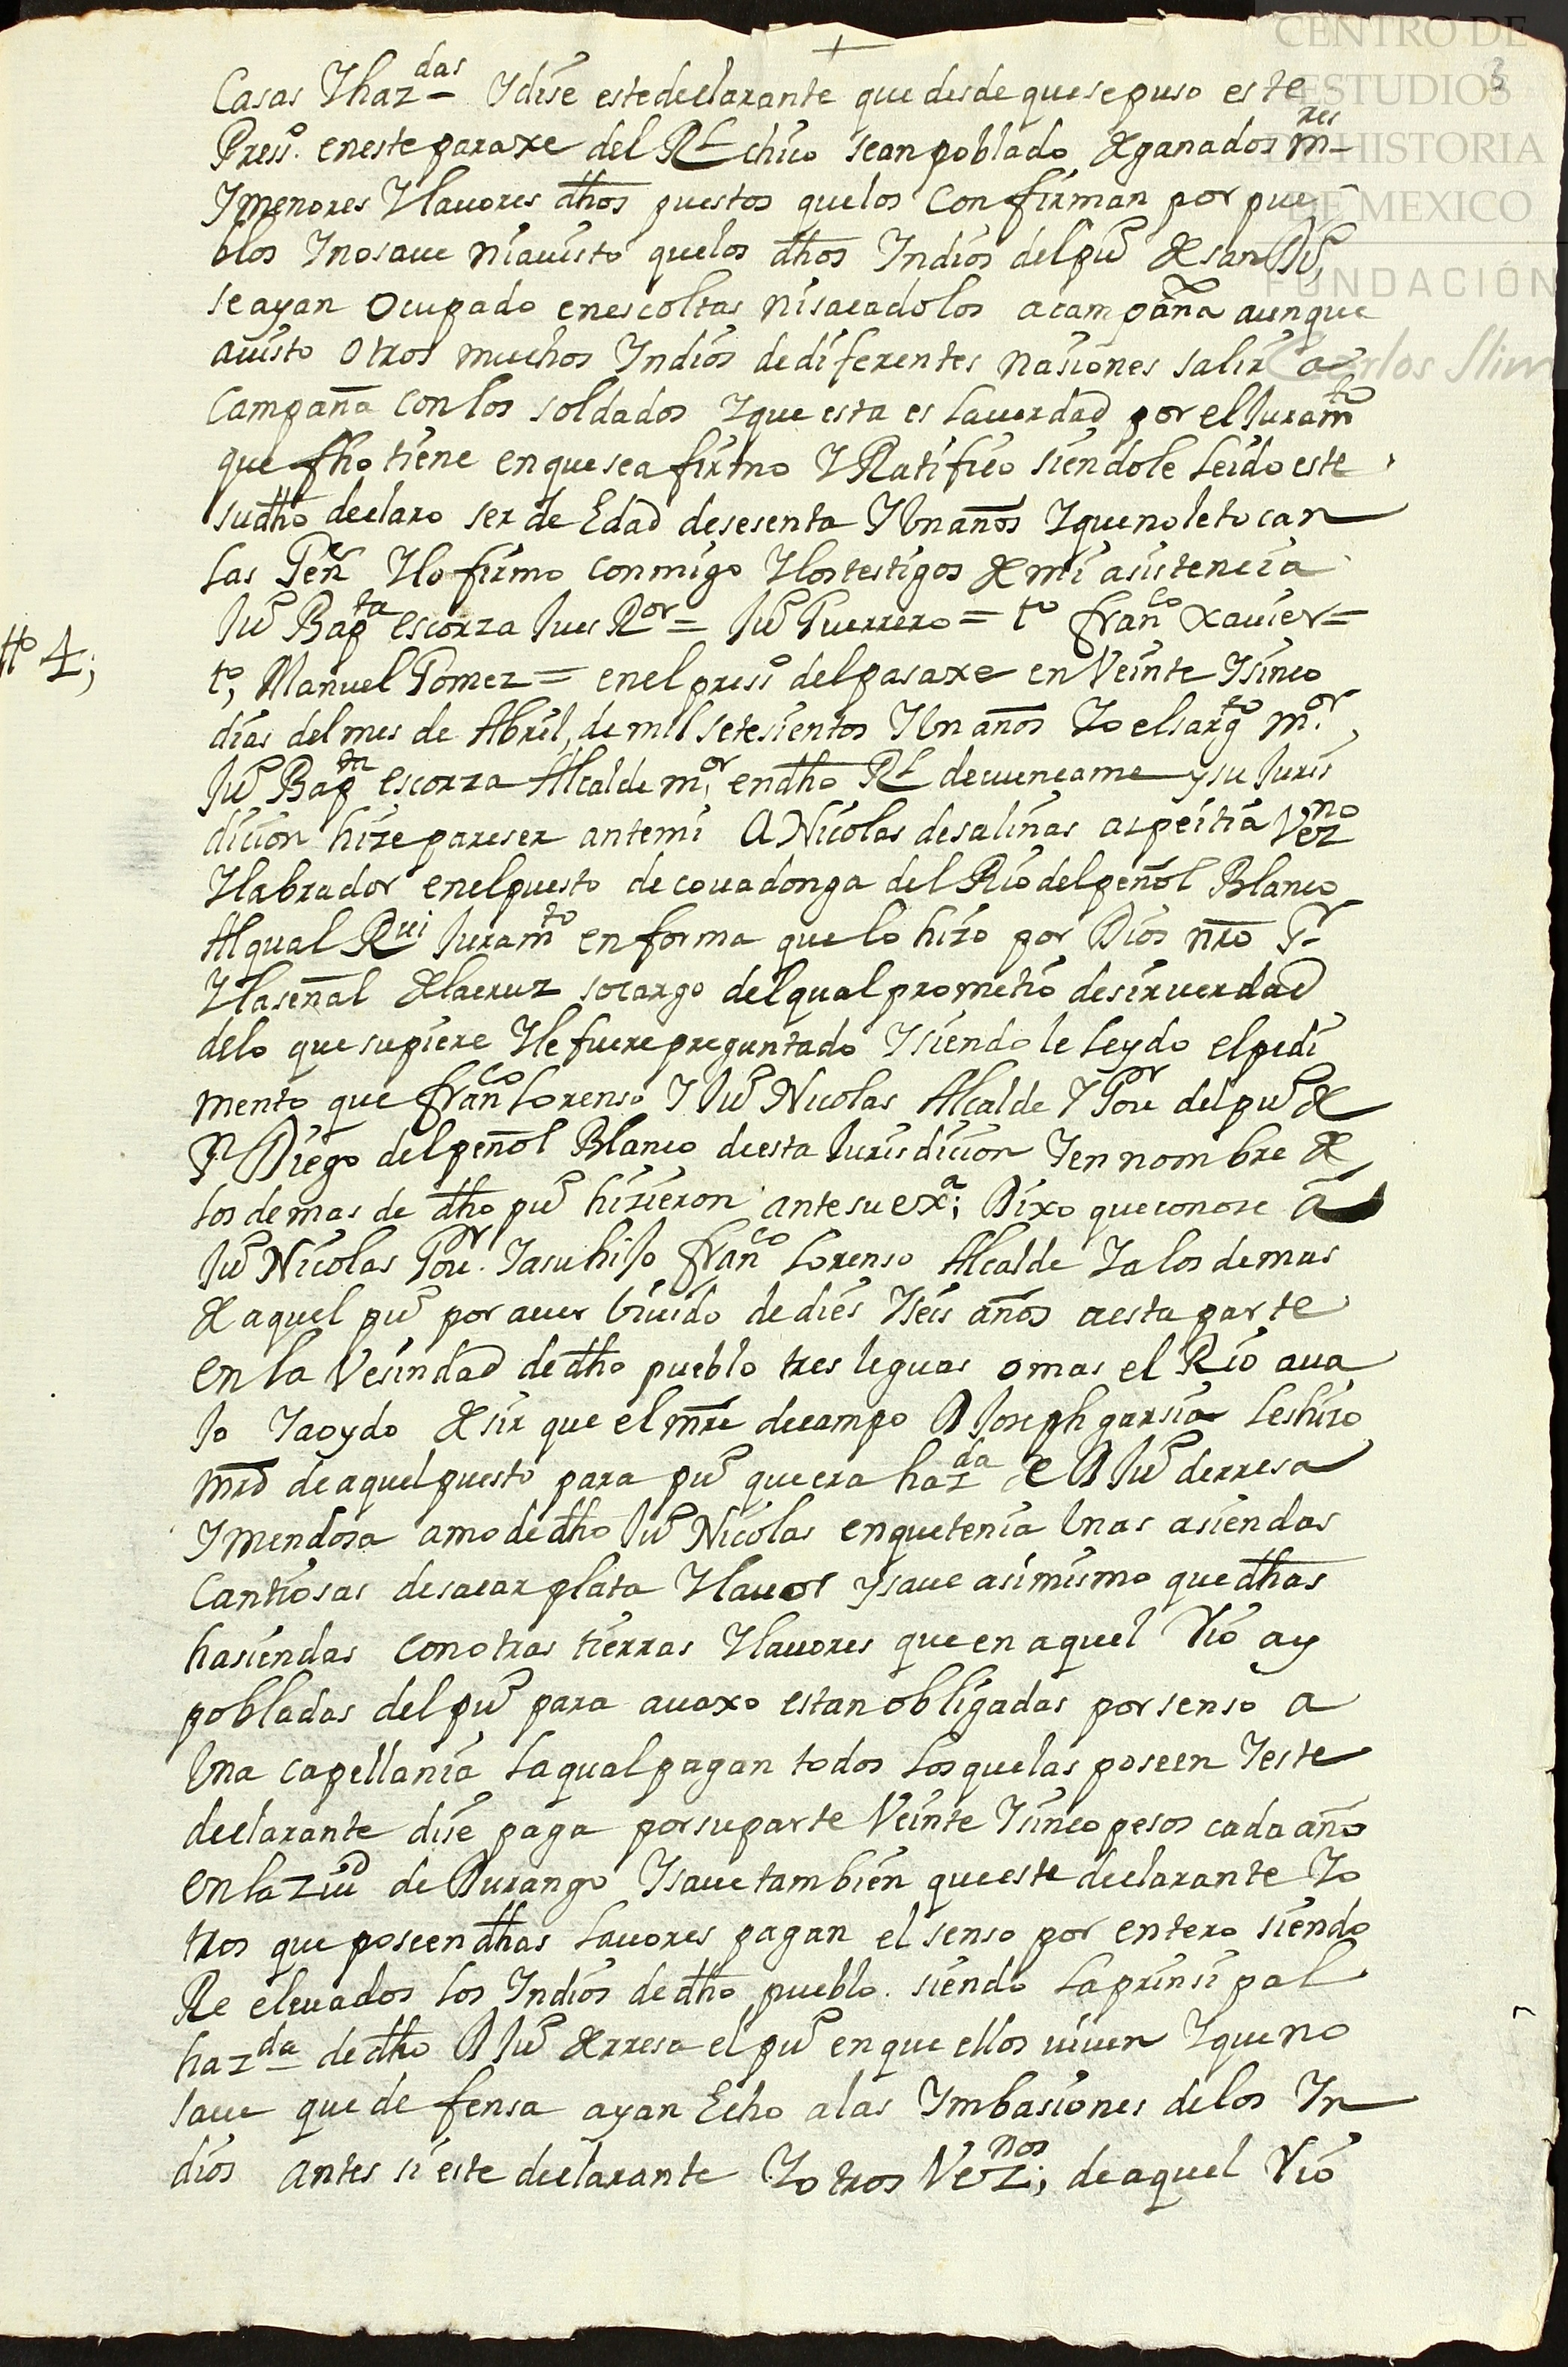 +
3
Casas Yhaz.das Ydise estedeclarante que desde quesepuso este
Press.o enesteparaxe del Rl chico seanpoblado de ganados m.res
Ymenores Ylauores dhos puestos quelos confirman por pue
blos Ynosaue niauisto quelos dhos Yndios delpu.o de san Du.o
seayan Ocupado enescoltas nisacadolos acampaña aunque
auisto Otros muchos Yndios dediferentes nasiones salir a
Campaña conlos soldados Yque esta es lauerdad por elJuram.to
que fho tiene enquesea firmo YRatifico siendole leido este
sudho declaro ser de Edad desesenta YUnaños Yquenoletocan
las Gen.r Ylofirmo conmigo Ylostestigos de mi asistencia
Ju.o Bap.ta escorza Jues R.or = Ju.o Guerrero = t.o fran.co xauier =
tt.o 4;
t.o, Manuel Gomez = enel press.o delpasaxe en Veinte Ysinco
dias delmes de Abril, de mil setesientos YUnaños Yo elsarg.to m.or,
Ju.o Bap.ta escorza Alcalde m.or endho Rl decuencame ysu Juris
dicion hize pareser antemi A Nicolas desalinas aspeitia Vez.no
Ylabrador enelpuesto de couadonga del Rio delpeñol Blanco
Alqual Rui Juram.to enforma quelo hizo por Dios nro S.r
Ylaseñal de lacruz socargo delqual prometio desir uerdad
delo que supiere Yle fuere preguntado Ysiendo le leydo elpedi
mento que fran.co Lorenso Y Ju.o Nicolas Alcalde Y Gou.or delpu.o de
S.n Diego delpeñol Blanco deesta Jurisdicion Yennombre de
los demas de dho pu.o hizieron antesu ex.a; Dixo queconose a
Ju.o Nicolas Gou.or Yasu hiJo fran.co Lorenso Alcalde Yalos demas
de aquel pu.o por auer biuido de dies Yseis años aesta parte
en la Vesindad dedho pueblo tres leguas omas el Rio aua
Jo Yaoydo de sir que el mre decampo D Joseph garsia leshizo
mrd deaquelpuesto para pu.o queera haz.da de D Ju.o derresa
Ymendosa amo dedho Ju.o Nicolas enquetenia Unas asiendas
Cantiosas desacar plata Ylauor ysaue asimismo que dhas
hasiendas conotras tierras Ylauores queen aquel Rio ay
pobladas delpu.o para auaxo estan obligadas por senso a
Una capellania laqualpagan todos losquelas poseen Yeste
declarante dise paga porsuparte Veinte Ysinco pesos cada año
enla Ziu.d de Durango Ysauetambien queeste declarante Yo
tros queposeendhas lauores pagan el senso por entero siendo
Re eleuados los Yndios dedho pueblo. siendo laprinsipal
haz.da dedho D Ju.o de rresa elpu.o enque ellos uiuen Yqueno
saue que de fensa ayan Echo alas Ymbasiones delos Yn
dios antes si este declarante Yotros Vez.nos; deaquel Rio
CENTRO DE
ESTUDIOS
DE HISTORIA
DE MEXICO
FUNDACIÓN
Carlos Slim